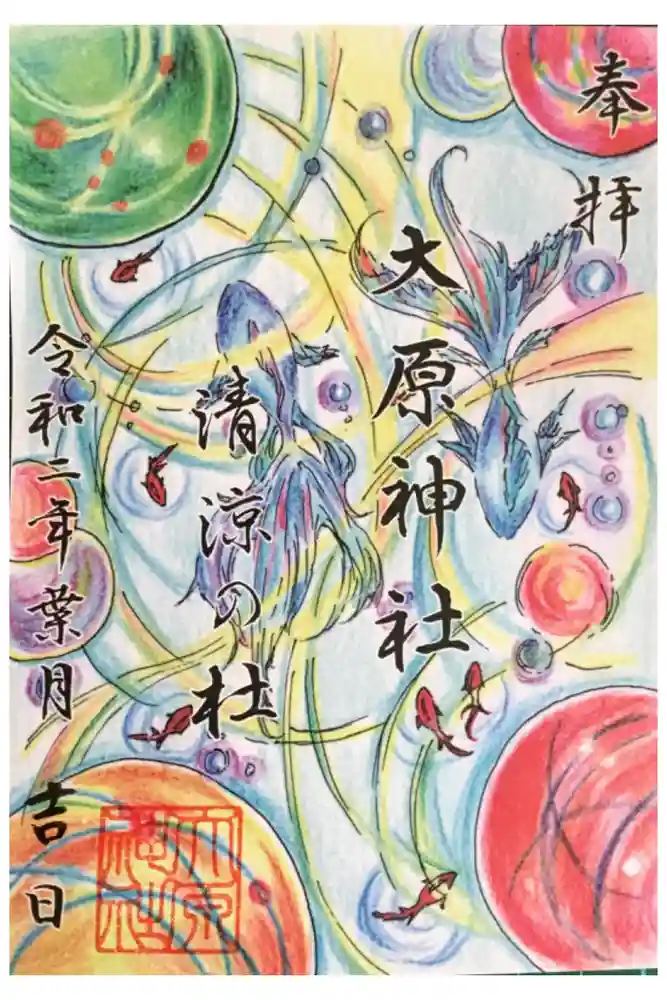 奉拝
大原神社
清涼の杜
令和二年葉月 吉日
大原神社